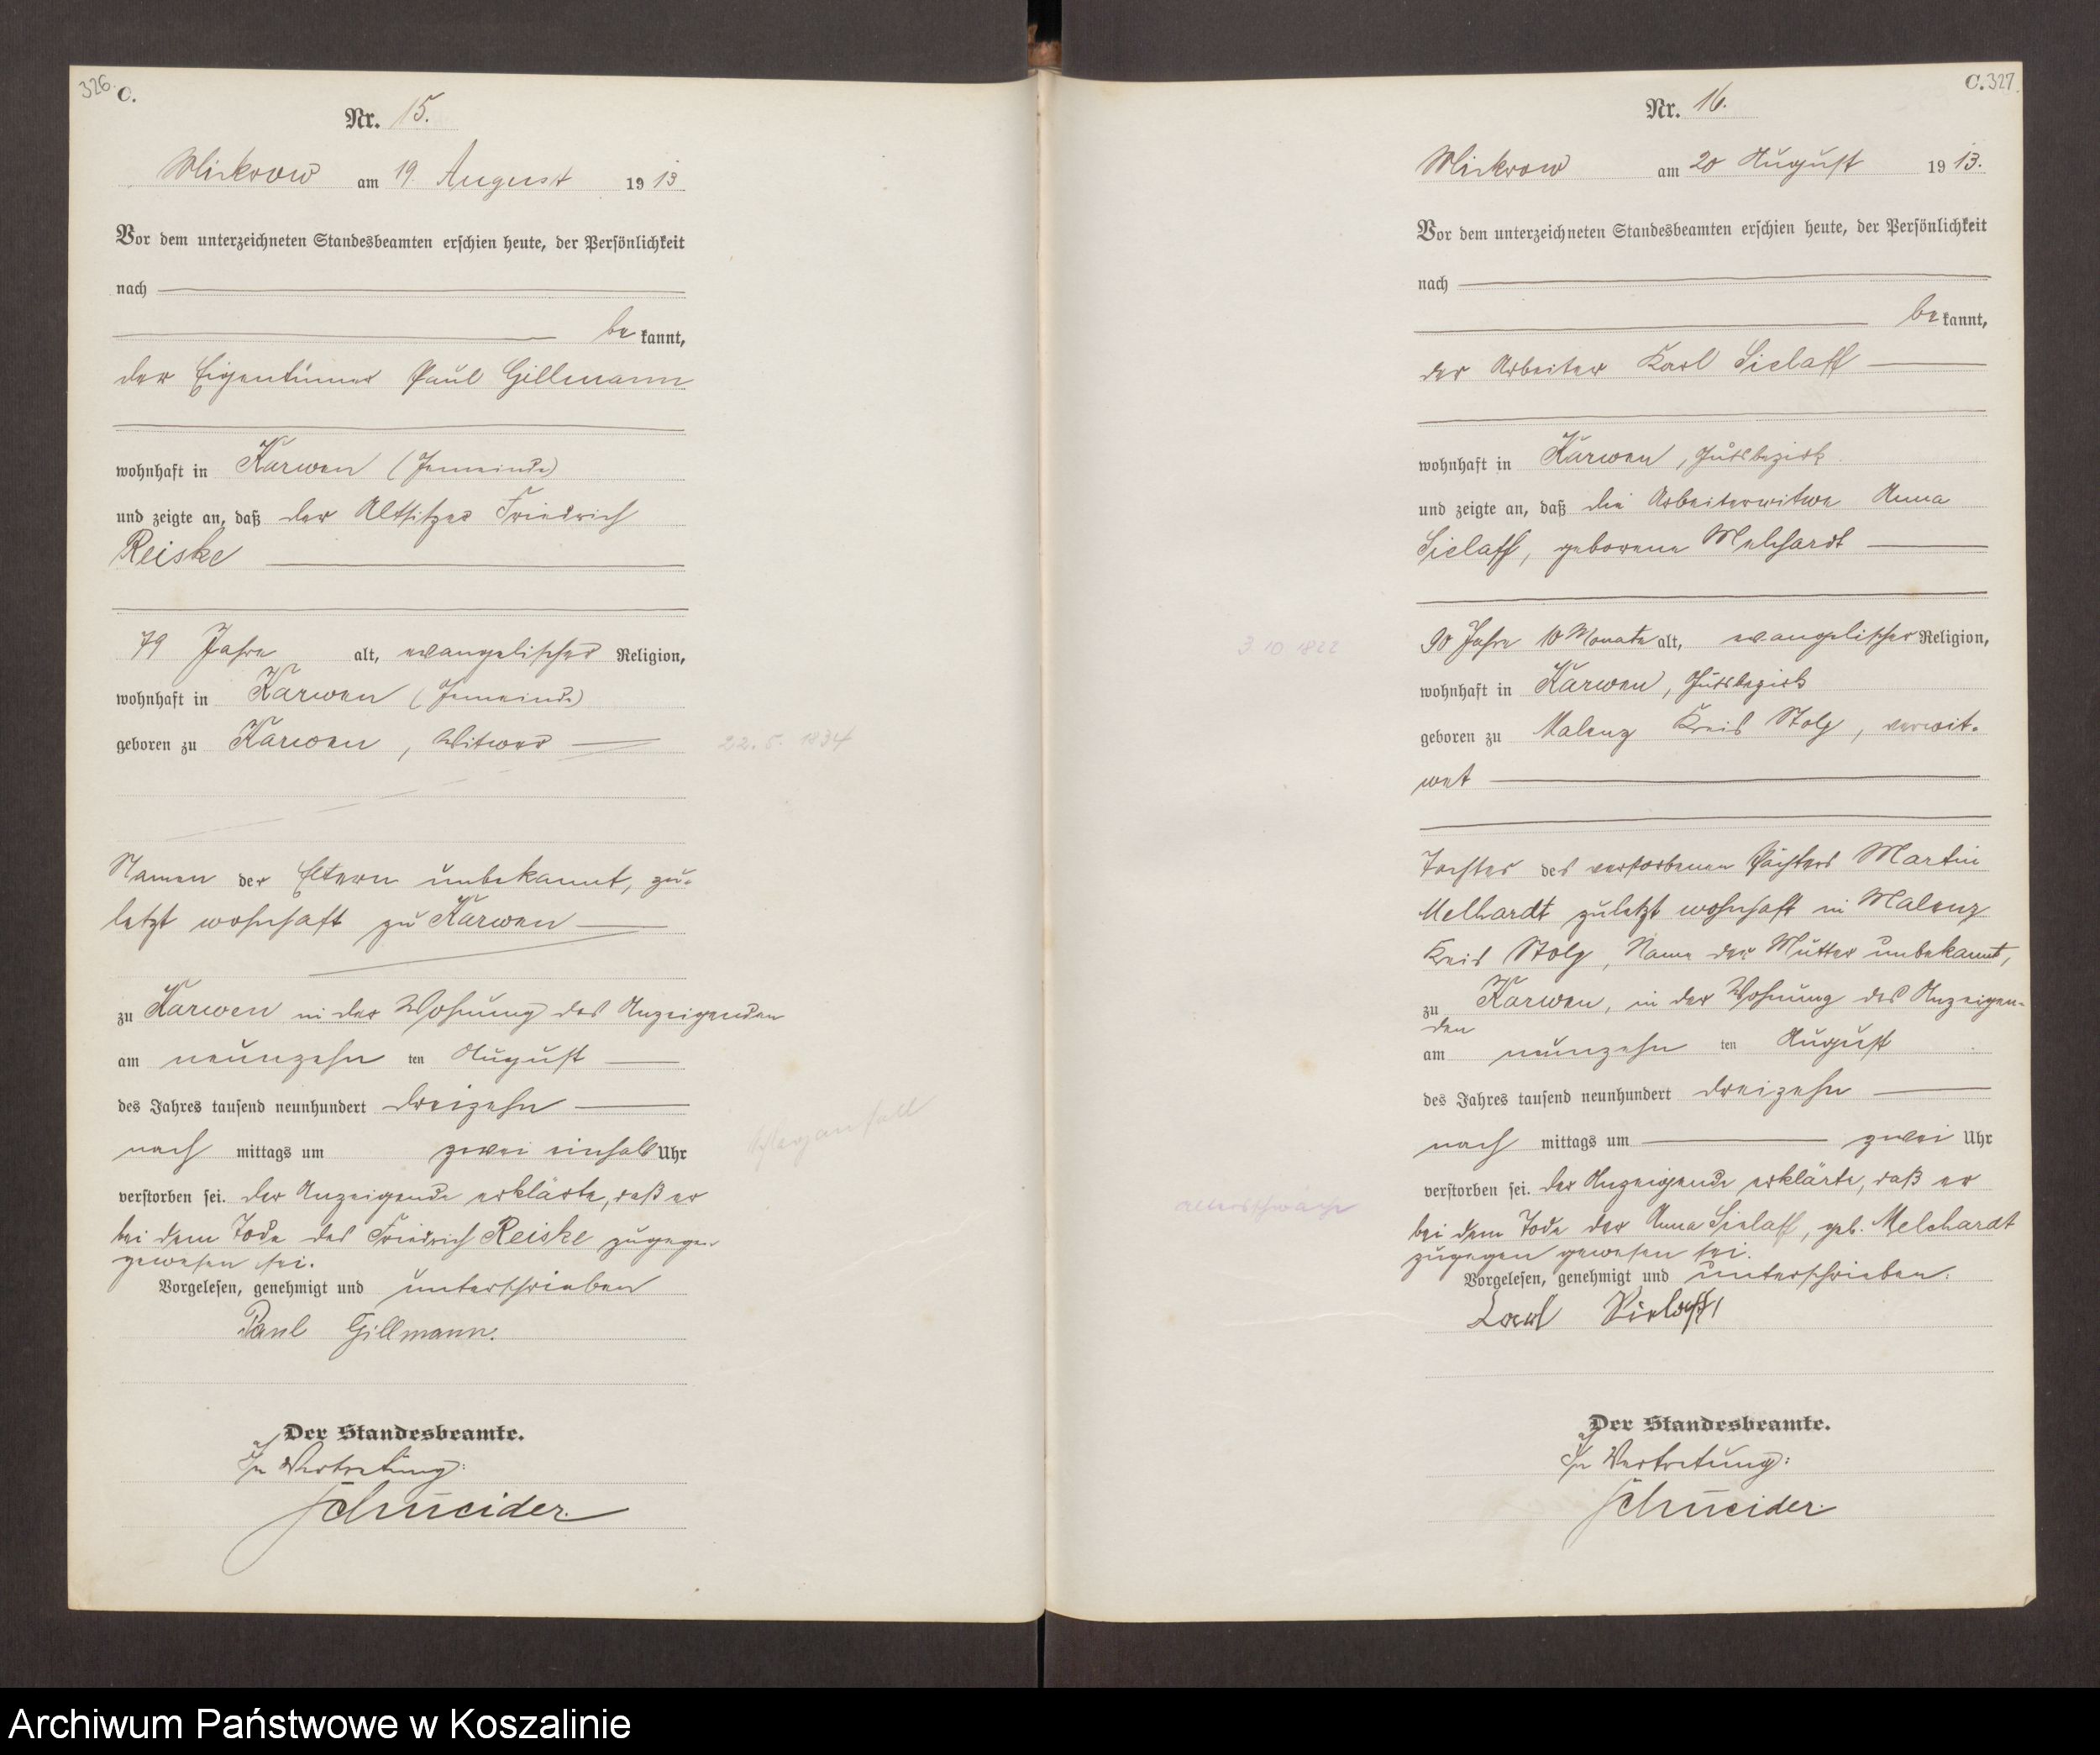 326.
C.
Nr. 15.
Mickrow am 19. August 1913
Vor dem unterzeichneten Standesbeamten erschien heute, der Persönlichkeit
nach
be kannt,
der Eigentümer Paul Gillmann
wohnhaft in Karwen (Gemeinde)
und zeigte an, daß der Altsitzer Friedrich
Reiske
79 Jahre alt, evangelischer Religion,
wohnhaft in Karwen (Gemeinde)
geboren zu Karwen, Witwer
22.5. 1834
Namen der Eltern unbekannt, zu-
letzt wohnhaft zu Karwen
zu Karwen in der Wohnung des Anzeigenden
am neunzehn ten August
des Jahres tausend neunhundert dreizehn
nach mittags um zwei einhalb Uhr
verstorben sei. Der Anzeigende erklärte, daß er
bei dem Tode des Friedrich Reiske zugegen
gewesen sei.
Vorgelesen, genehmigt und unterschrieben
Paul Gillmann.
Der Standesbeamte.
In Vertretung:
Schneider.
C. 327.
Nr. 16.
Mickrow am 20 August 1913.
Vor dem unterzeichneten Standesbeamten erschien heute, der Persönlichkeit
nach
be kannt,
der Arbeiter Karl Sielaff
wohnhaft in Karwen, Gutsbezirk
und zeigte an, daß die Arbeiterwitwe Anna
Sielaff, geborene Melchardt
3.10 1822
90 Jahre 10 Monate alt, evangelischer Religion,
wohnhaft in Karwen, Gutsbezirk
geboren zu Malenz Kreis Stolp, verwit-
wet
Tochter des verstorbenen Pächters Martin
Melhardt zuletzt wohnhaft in Malenz
Kreis Stolp, Name der Mutter unbekannt,
zu Karwen, in der Wohnung des Anzeigen-
den
am neunzehn ten August
des Jahres tausend neunhundert dreizehn
nach mittags um zwei Uhr
verstorben sei. Der Anzeigende erklärte, daß er
Altersschwäche
bei dem Tode der Anna Sielaff, geb. Melchardt
zugegen gewesen sei.
Vorgelesen, genehmigt und unterschrieben.
Karl Sielaff
Der Standesbeamte.
In Vertretung:
Schneider.
Archiwum Państwowe w Koszalinie